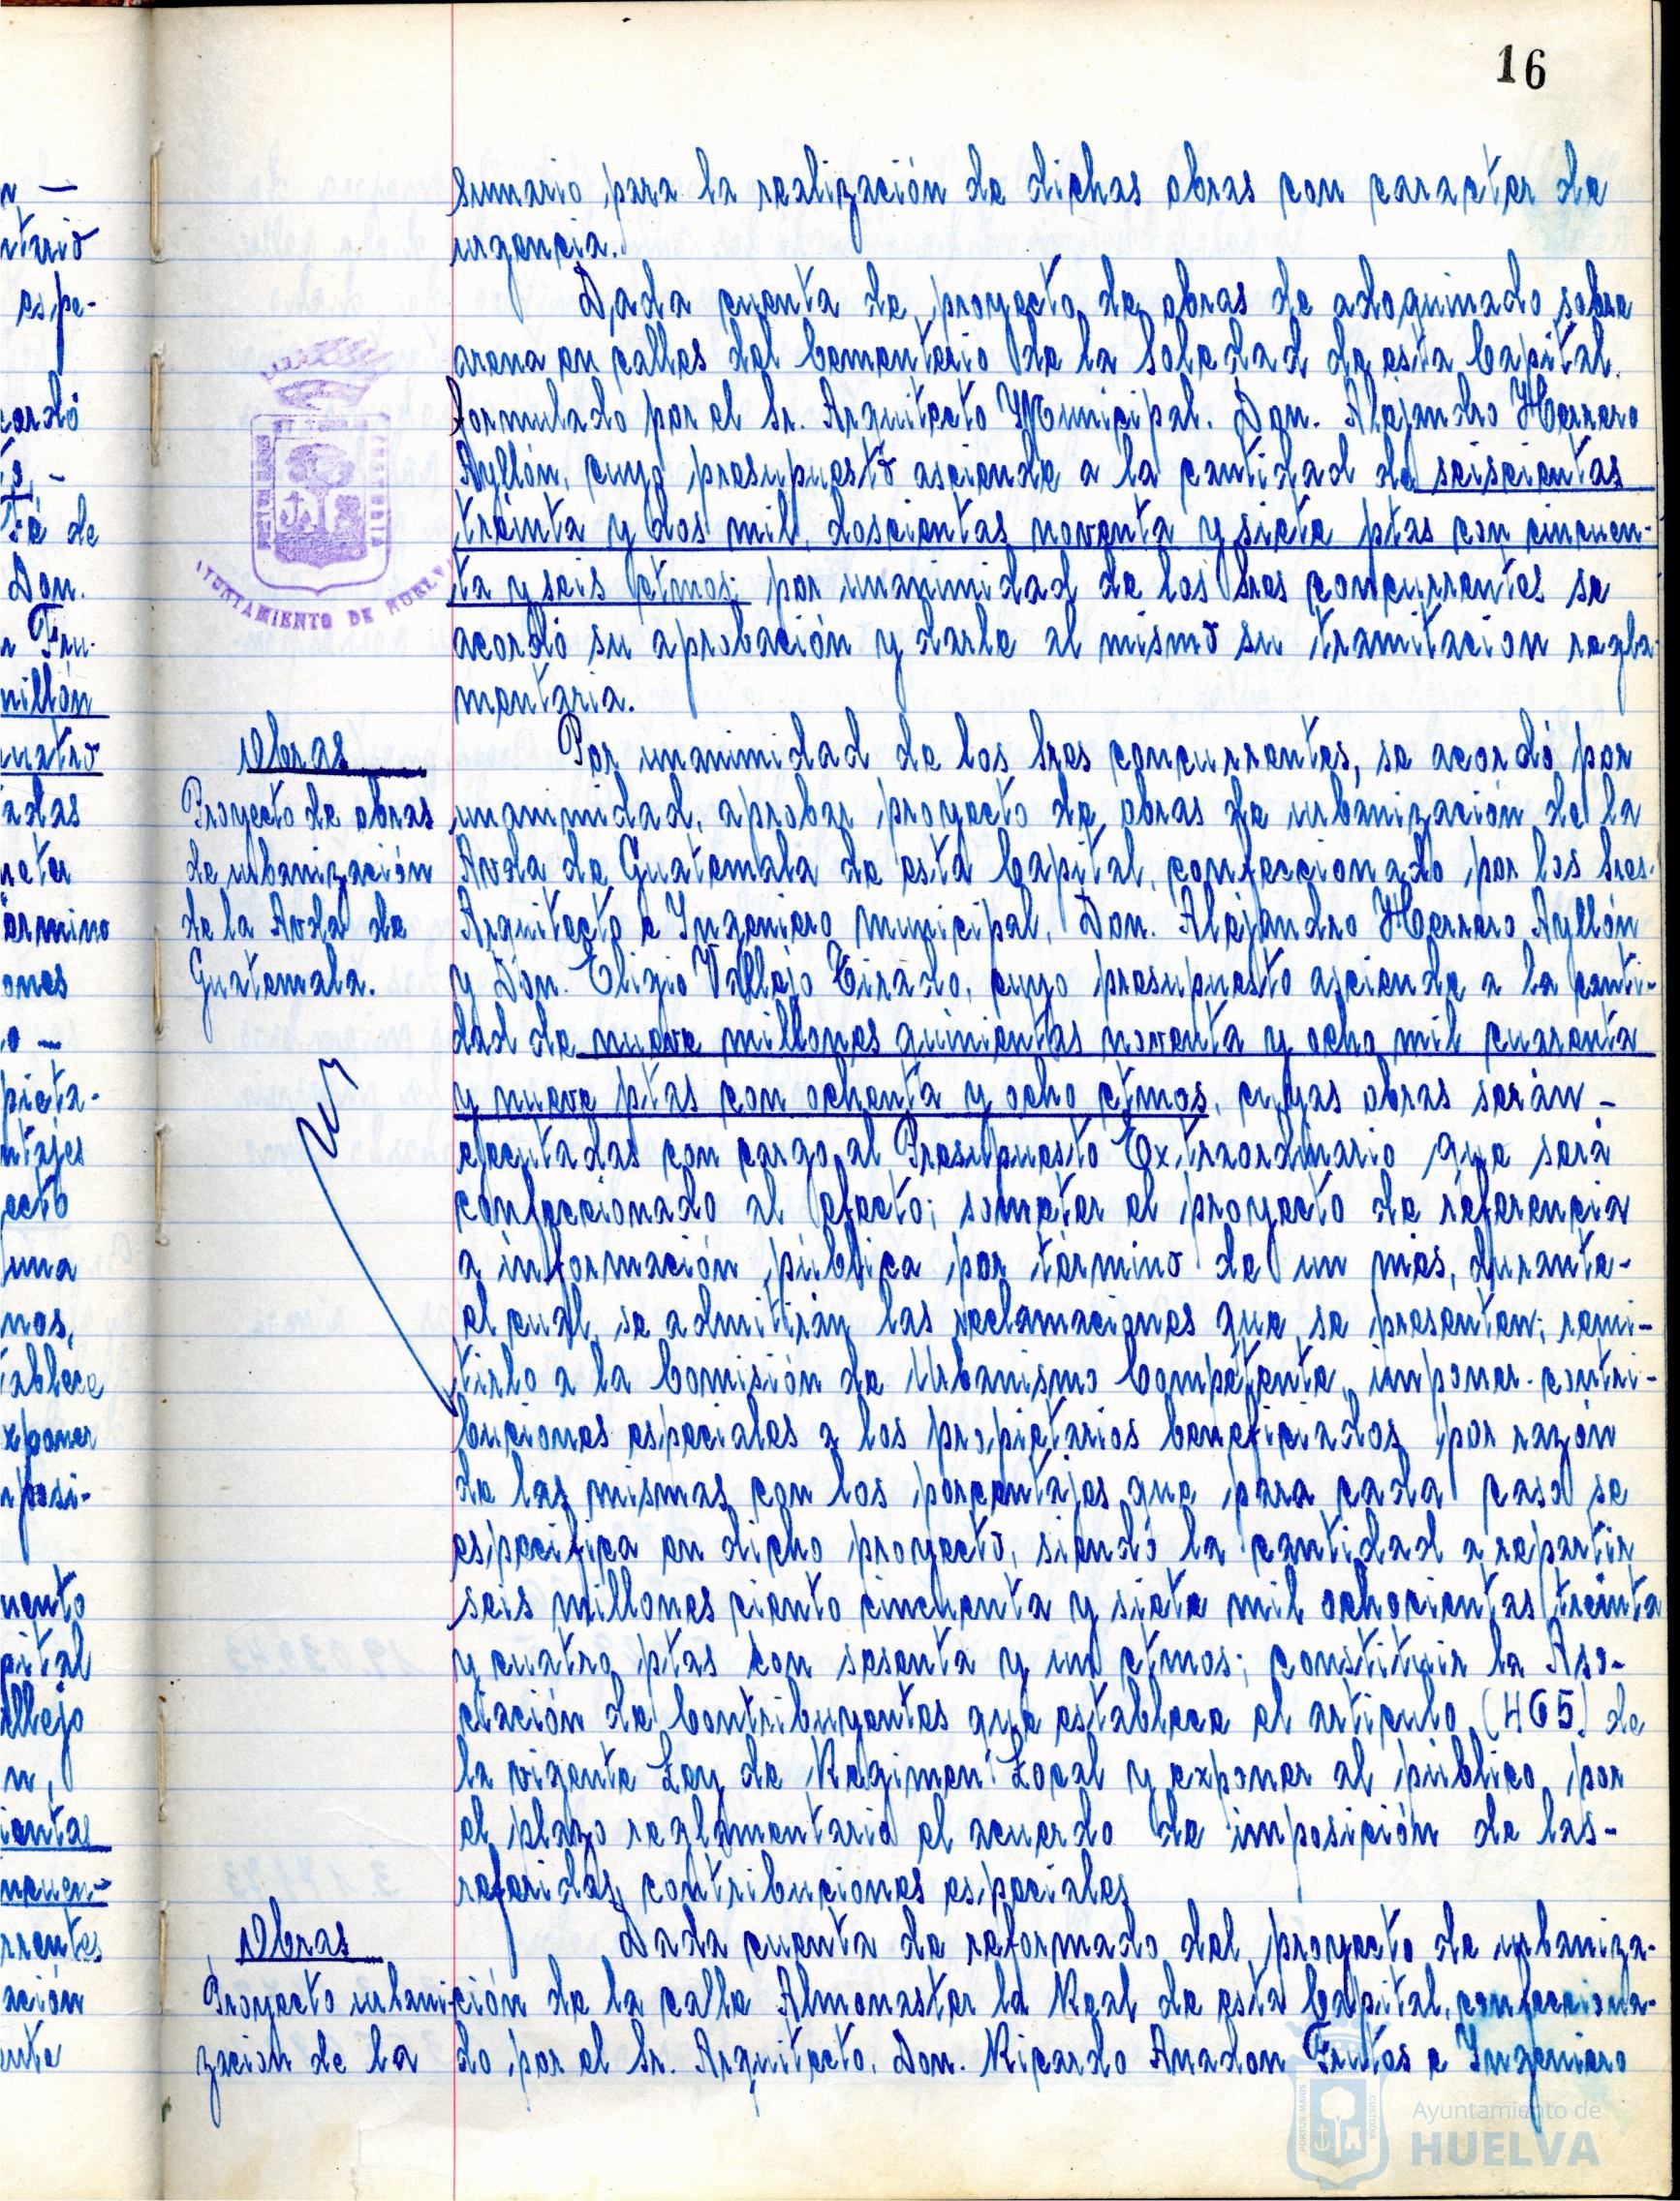 16
sumario para la realización de dichas obras con caracter de
urgencia.
Dada cuenta de proyecto de obras de adoquinado sobre
arena en calles del Cementerio de la Soledad de esta Capital.
formulado por el Sr. Arquitecto Municipal. Don. Alejandro Herrero
Ayllón, cuyo presupuesto asciende a la cantidad de seiscientas
treinta y dos mil, doscientas noventa y siete ptas con cincuen-
ta y seis ctmos; por unanimidad de los Sres concurrentes se
acordó su aprobación y darle al mismo su tramitacion regla-
mentaria.
AYUNTAMIENTO DE HUELVA
Obras
Proyecto de obras
de urbanización
de la Avda de
Guatemala.
Por unanimidad de los Sres concurrentes, se acordó por
unanimidad, aprobar proyecto de obras de urbanización de la
Avda de Guatemala de esta Capital, confeccionado por los Sres.
Arquitecto e Ingeniero municipal, Don. Alejandro Herrero Ayllón
y Don. Eligio Vallejo Tirado, cuyo presupuesto asciende a la canti-
dad de nueve millones quinientas noventa y ocho mil cuarenta
y nueve ptas con ochenta y ocho ctmos, cuyas obras serán -
ejecutadas con cargo al Presupuesto Extraordinario que será
confeccionado al efecto; someter el proyecto de referencia
a información pública por término de un mes, durante-
el cual, se admitirán las reclamaciones que se presenten; remi-
tirlo a la Comisión de Urbanismo Competente, imponer contri-
buciones especiales a los propietarios beneficiados por razón
de las mismas con los porcentajes que para cada caso se
especifica en dicho proyecto, siendo la cantidad a repartir
seis millones ciento cincuenta y siete mil ochocientas treinta
y cuatro ptas con sesenta y un ctmos; constituir la Aso-
ciación de Contribuyentes que establece el articulo (465) de
la vigente Ley de Regimen Local y exponer al público por
el plazo reglamentario el acuerdo de imposición de las-
referidas contribuciones especiales
Obras
Proyecto urbani-
zacion de la
Dada cuenta de reformado del proyecto de urbaniza-
ción de la calle Almonaster la Real de esta Capital, confecciona-
do por el Sr. Arquitecto, Don. Ricardo Anadon Frutos e Ingeniero
Ayuntamiento de
HUELVA